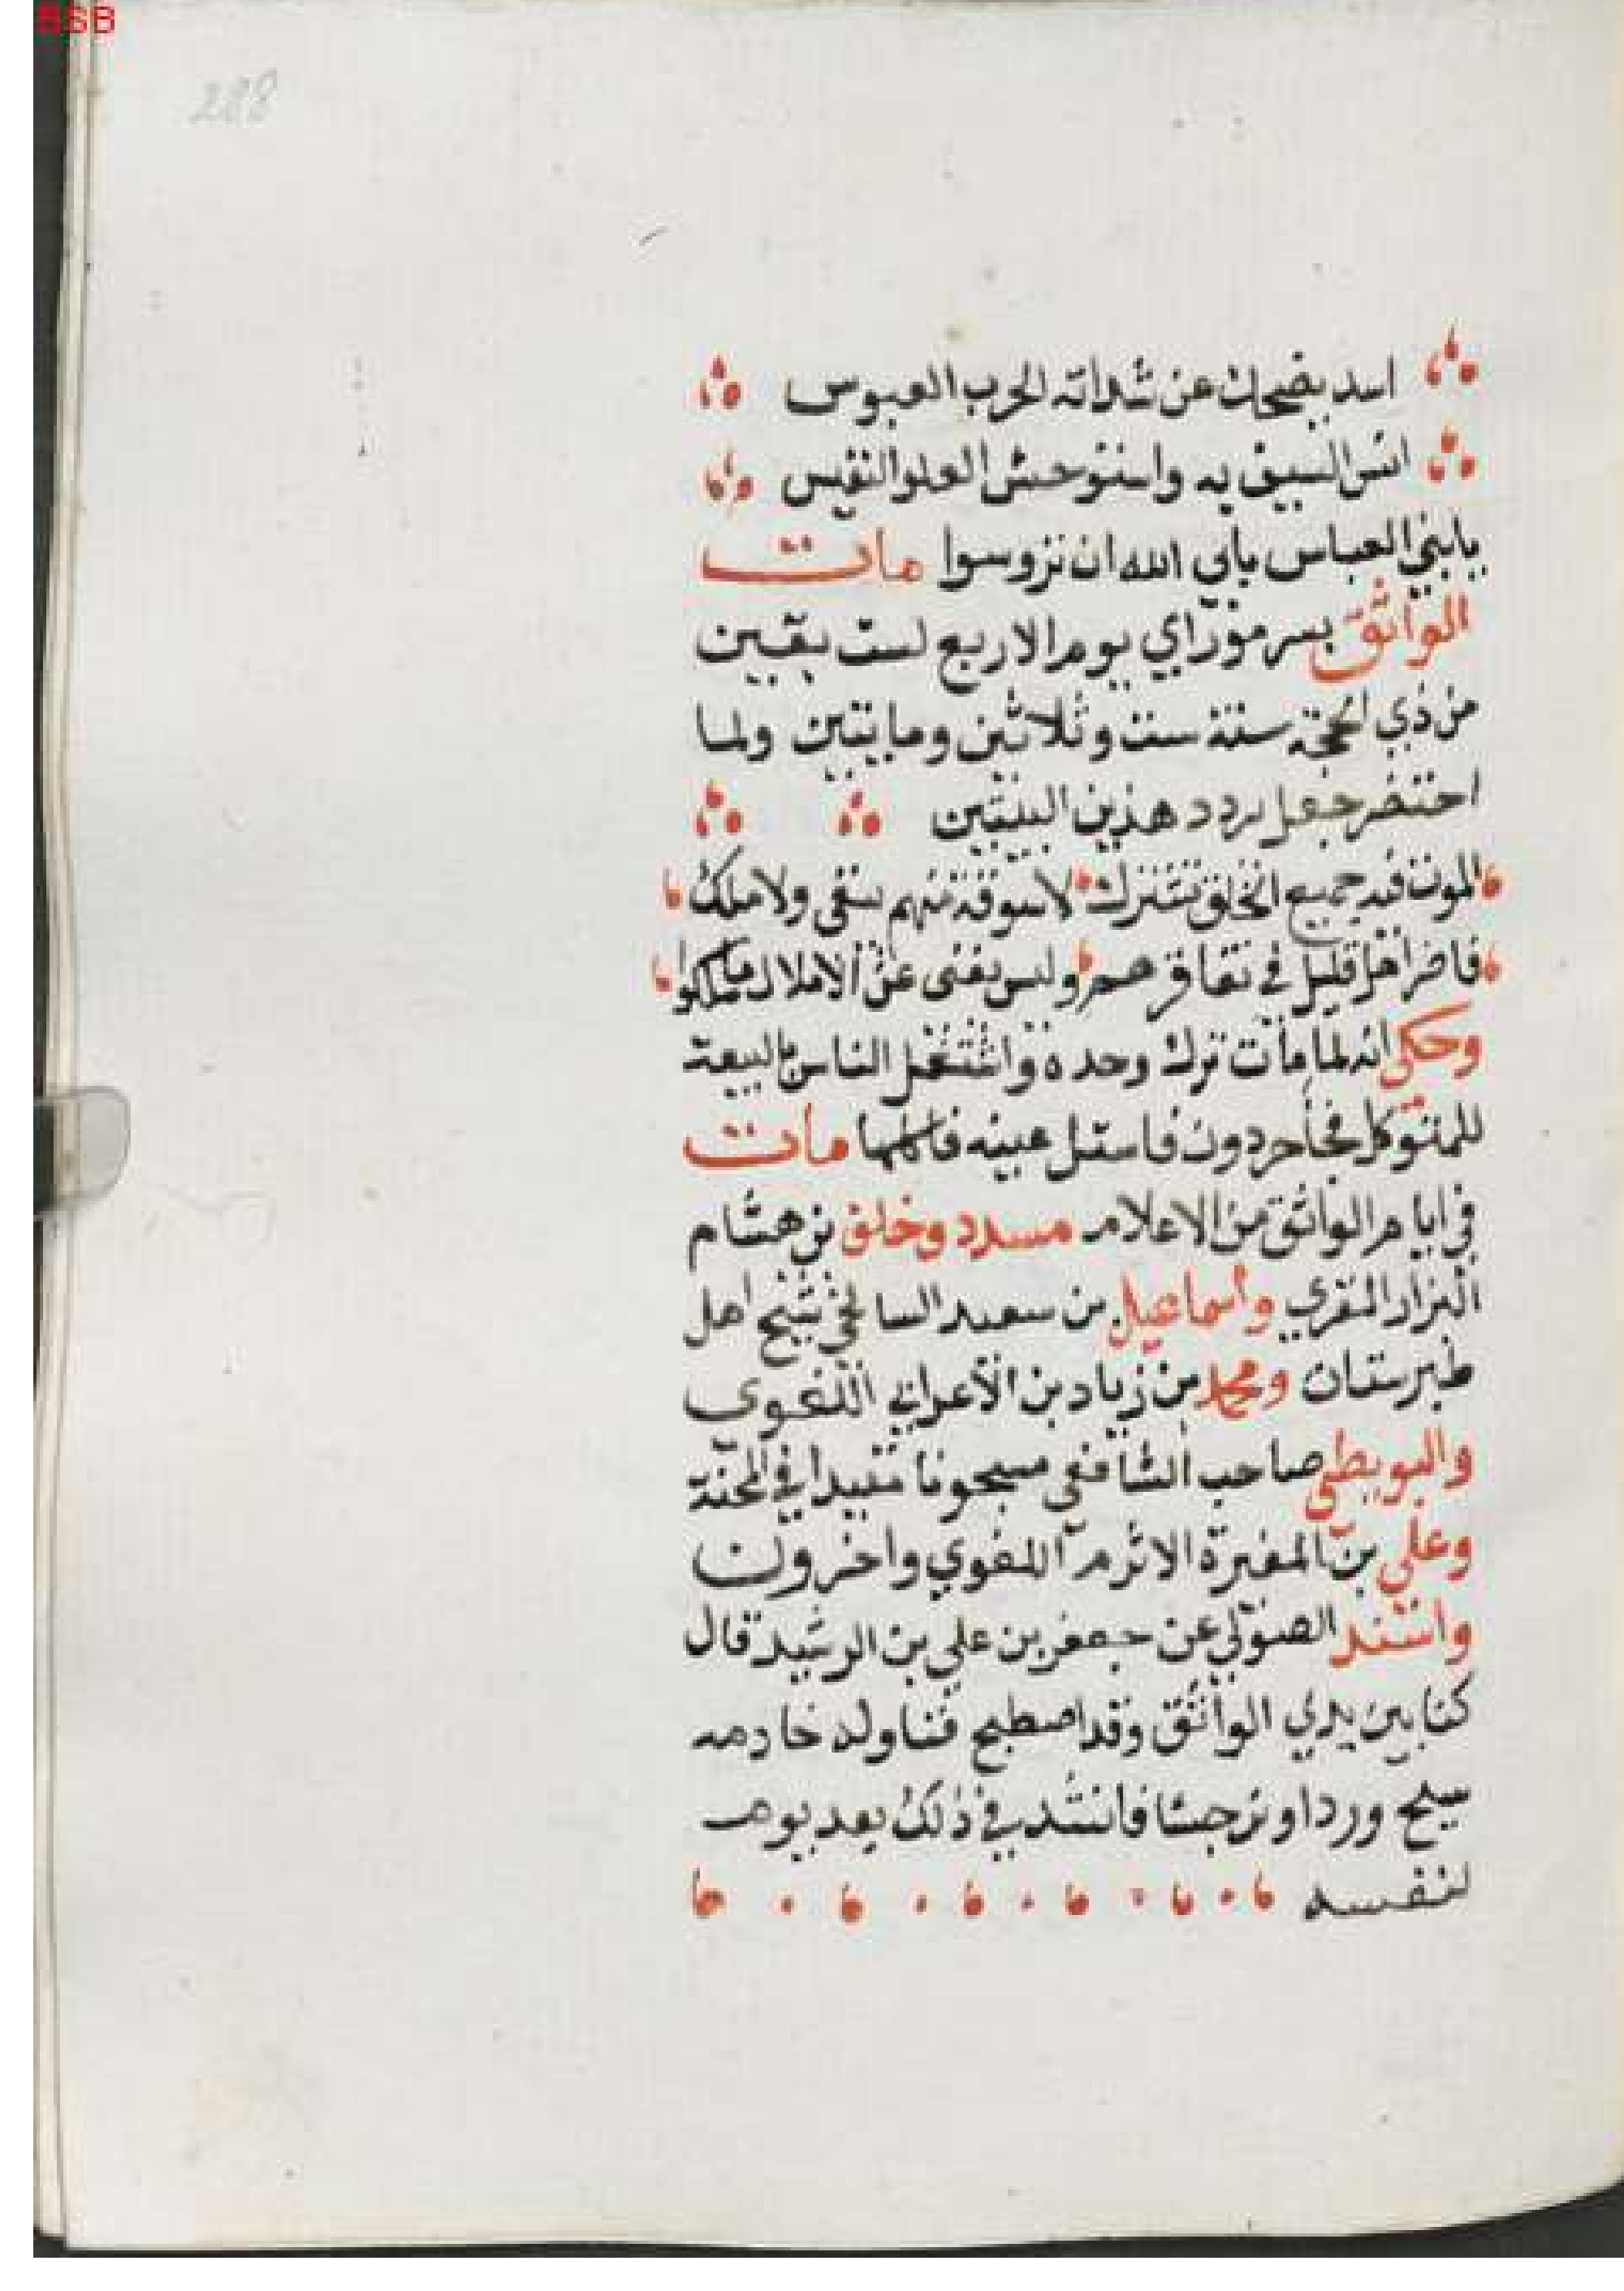 BSB
288
اسد يضحك عن شداته الحرب العبوس
انس السيف به واستوحش العلو النفيس
يا بني العباس يأبى الله ان تروسوا مات
الواثق بسر من راي يوم الاربع لست بقين
من ذي الحجة سنة ست وثلاثين ومايتين ولما
احتضر جعل يردد هذين البيتين
الموت فيه جميع الخلق تشترك لا سوقة منهم يبقى ولا ملك
فا ضر اهل قليل في تفاقرهم وليس يغنى عن الاملاك ما ملكوا
وحكى انه لما مات ترك وحده واشتغل الناس بالبيعة
للمتوكل فجا حردون فاستل عينه فاكلها مات
في ايام الواثق من الاعلام مسدد وخلف بن هشام
البزار المقري واسماعيل بن سعيد السالخي شيخ اهل
طبرستان ومحمد بن زياد بن الاعرابي اللغوي
والبويطي صاحب الشافعي مسجونا مقيدا في المحنة
وعلي بن المغيرة الاثرم اللغوي واخرون
واسند الصولي عن جعفر بن علي بن الرشيد قال
كنا بين يدي الواثق وقد اصطبح فناوله خادمه
وردا ونرجسا فانشد في ذلك بعد يوم
لنفسه